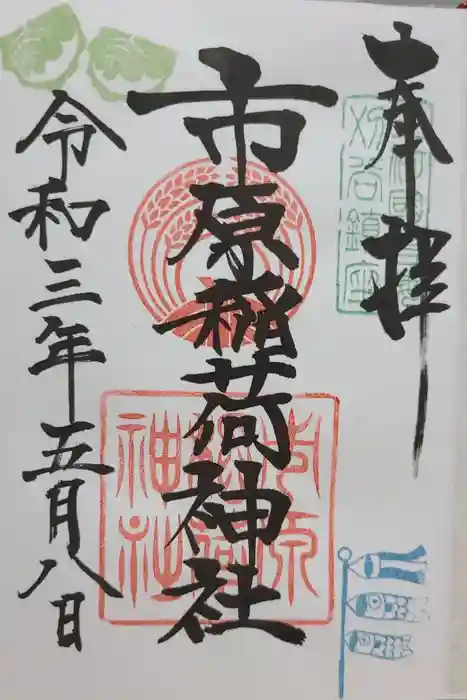 奉拝
刈谷鎮座
市原稲荷神社
市原稲荷神社
令和三年五月八日